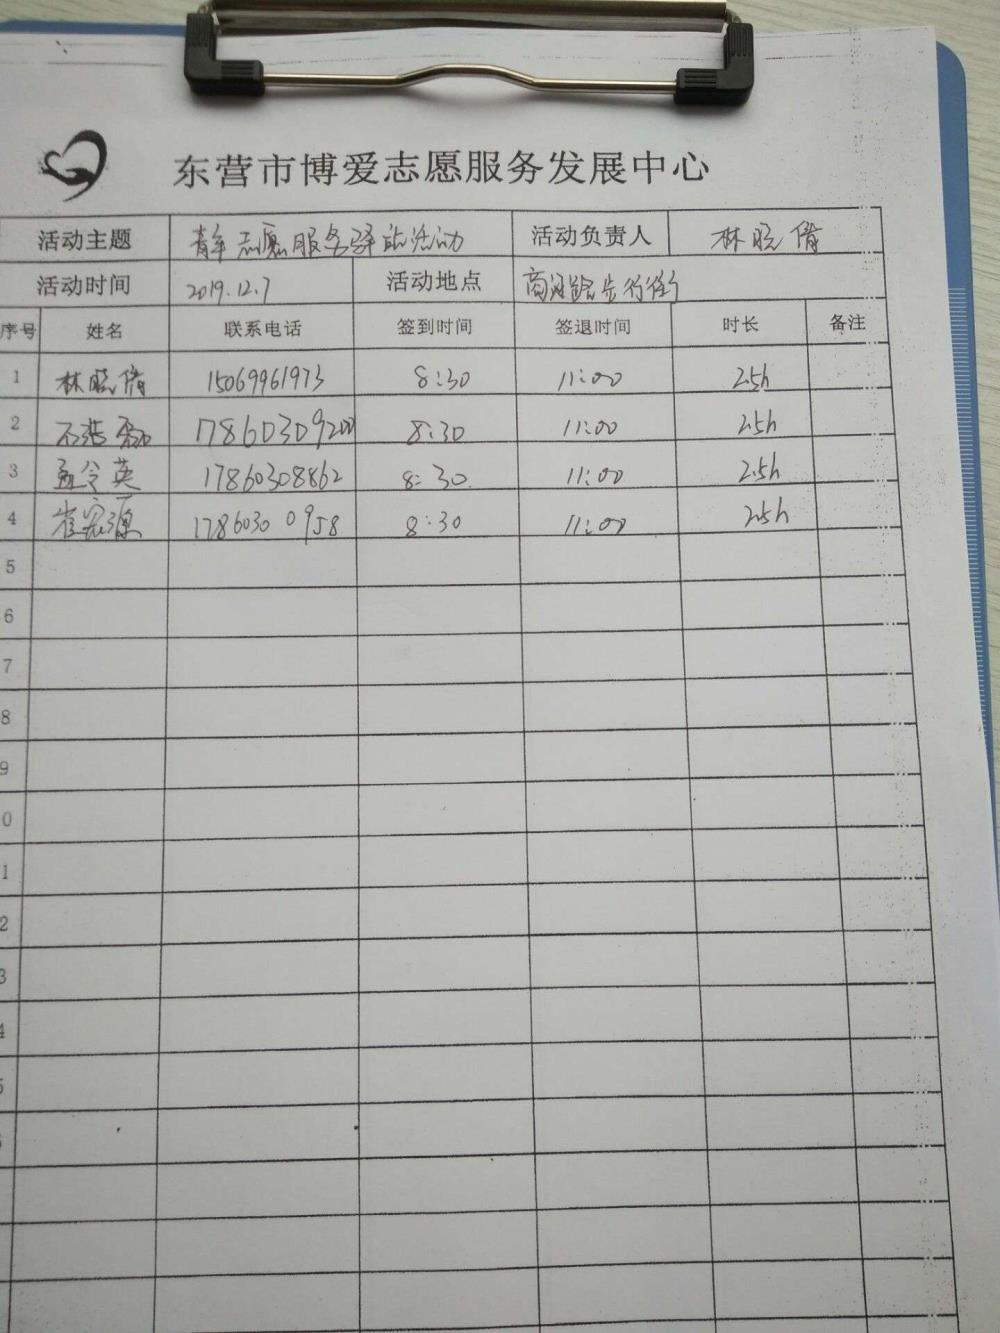 东营市博爱志愿服务发展中心
活动主题 青年志愿服务驿站活动 活动负责人 林晓倩
活动时间 2019.12.7 活动地点 步行街
序号 姓名 联系电话 签到时间 签退时间 时长 备注
1 林晓倩 15069961973 8:30 11:00 2.5h
2 17860309200 8:30 11:00 2.5h
3 孟令英 17860308862 8:30 11:00 2.5h
4 崔宏源 17860300958 8:30 11:00 2.5h
5
6
7
8
9
0
1
2
3
4
5